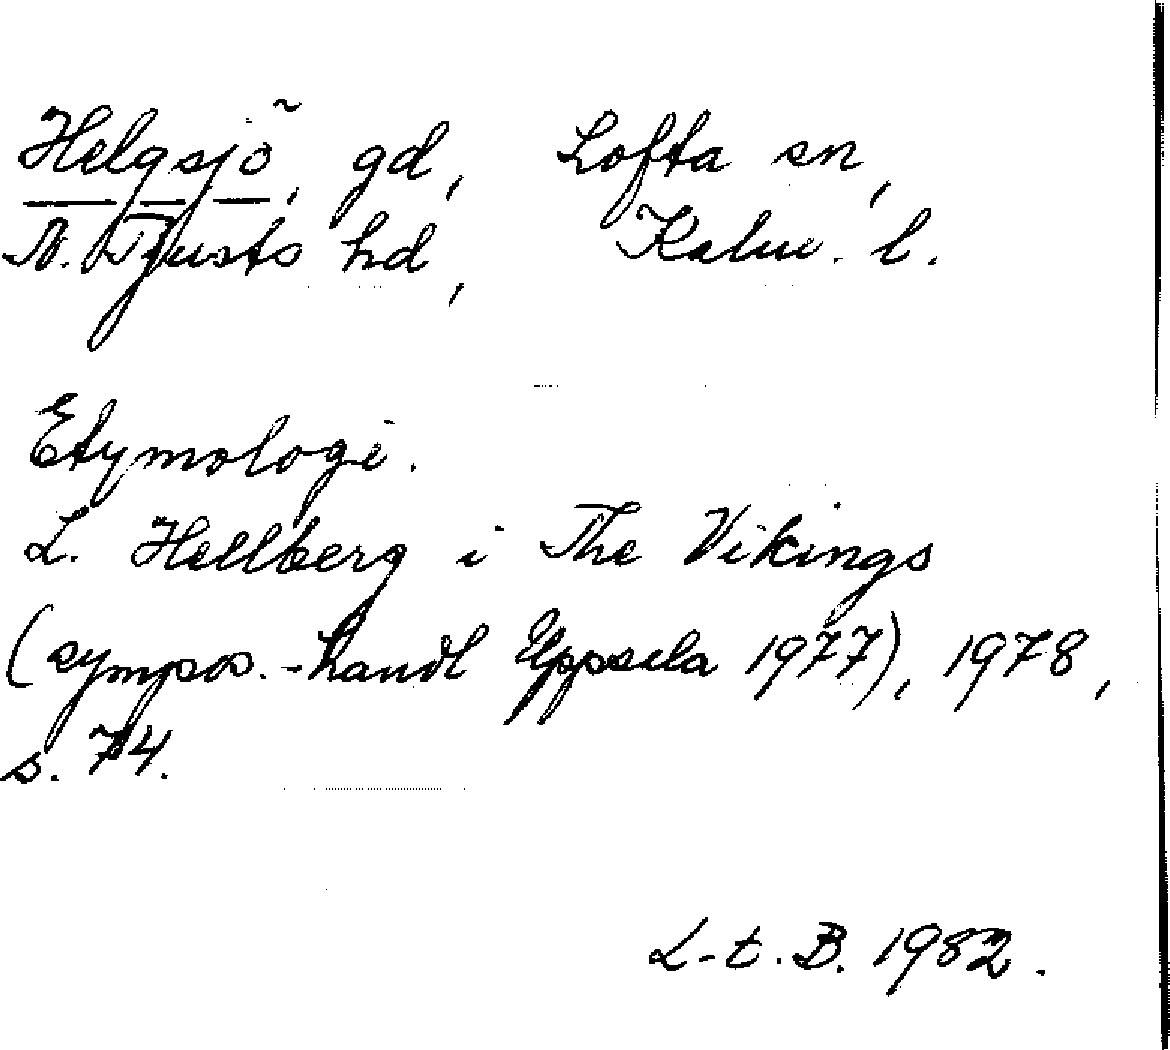 Helgsjö, gd, Lofta sn,
N. Tjusts hd, Kalm. l.
Etymologi.
L. Hellberg i The Vikings
(sympos.-handl Uppsala 1977), 1978,
s. 74.
L-t. B. 1982.